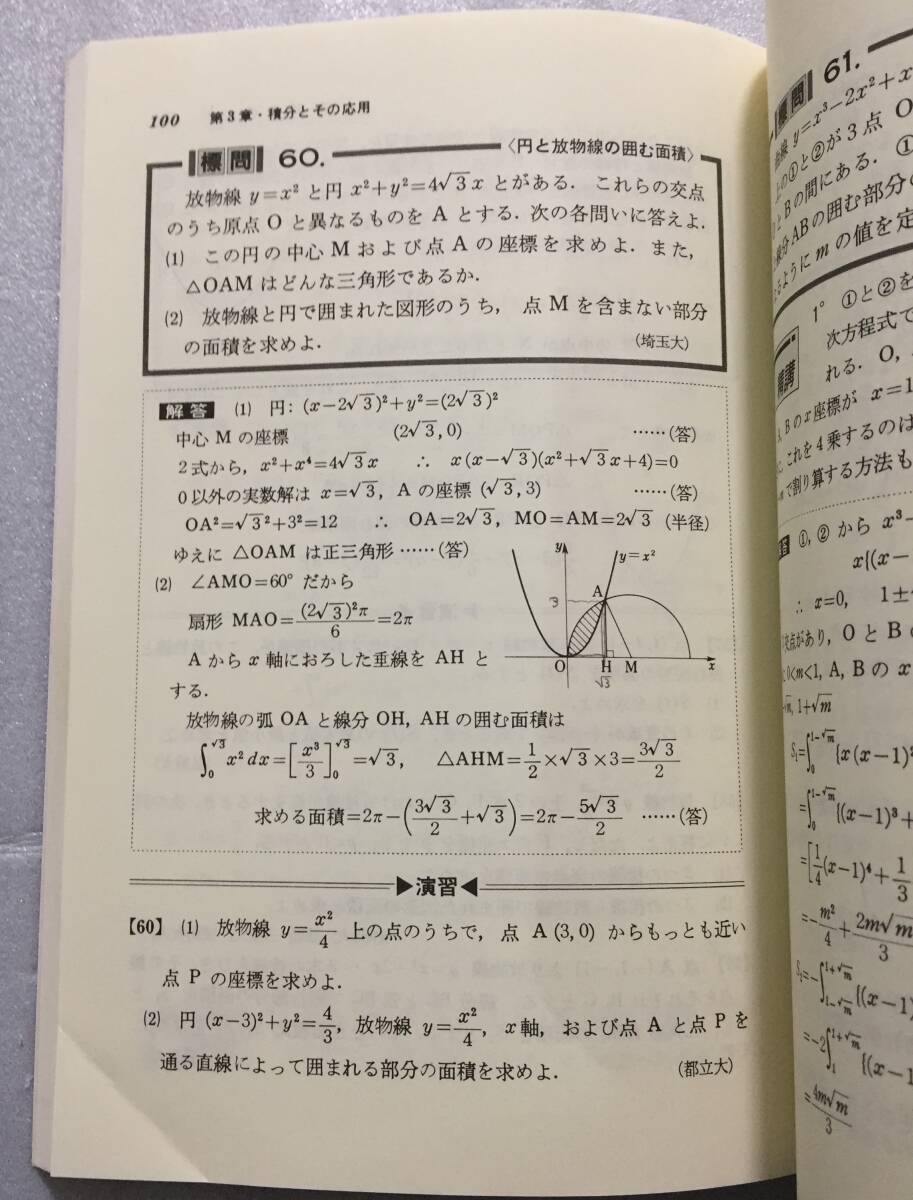 100 第3章・積分とその応用
標問 60. 〈円と放物線の囲む面積〉
放物線 y=x² と円 x²+y²=4√3x とがある．これらの交点
のうち原点 O と異なるものを A とする．次の各問いに答えよ．
(1) この円の中心 M および点 A の座標を求めよ．また，
△OAM はどんな三角形であるか．
(2) 放物線と円で囲まれた図形のうち，点 M を含まない部分
の面積を求めよ． (埼玉大)
解答 (1) 円：(x−2√3)²+y²=(2√3)²
中心 M の座標 (2√3, 0) ……(答)
2式から，x²+x⁴=4√3x ∴ x(x−√3)(x²+√3x+4)=0
0以外の実数解は x=√3，A の座標 (√3, 3) ……(答)
OA²=√3²+3²=12 ∴ OA=2√3，MO=AM=2√3 (半径)
ゆえに △OAM は正三角形……(答)
(2) ∠AMO=60° だから
扇形 MAO=(2√3)²π/6=2π
A から x 軸におろした垂線を AH と
する．
y y=x²
3 A
O H M x
√3
放物線の弧 OA と線分 OH, AH の囲む面積は
∫₀^√3 x²dx=[x³/3]₀^√3=√3， △AHM=1/2×√3×3=3√3/2
求める面積=2π−(3√3/2+√3)=2π−5√3/2 ……(答)
▶演習◀
【60】 (1) 放物線 y=x²/4 上の点のうちで，点 A(3, 0) からもっとも近い
点 P の座標を求めよ．
(2) 円 (x−3)²+y²=4/3，放物線 y=x²/4，x軸，および点 A と点 P を
通る直線によって囲まれる部分の面積を求めよ． (都立大)
標問 61.
線 y=x³−2x²+x
上の①と②が3点 O
とBの間にある．①
線分ABの囲む部分の
るように m の値を定
講 1° ①と②を
次方程式で
れる．O,
Bのx座標が x=1
これを4乗するのは
で割り算する方法も
①, ② から x³−
x{(x−
∴ x=0, 1±
交点があり，O と B の
0<m<1, A, B の x
√m, 1+√m
S₁=∫₀^1−√m {x(x−1)²
=∫₀^1−√m {(x−1)³+
=[1/4(x−1)⁴+1/3
=−m²/4+2m√m/3
S₂=−∫1−√m^1+√m {(x−1)
=−2∫₁^1+√m {(x−1
=4m√m/3